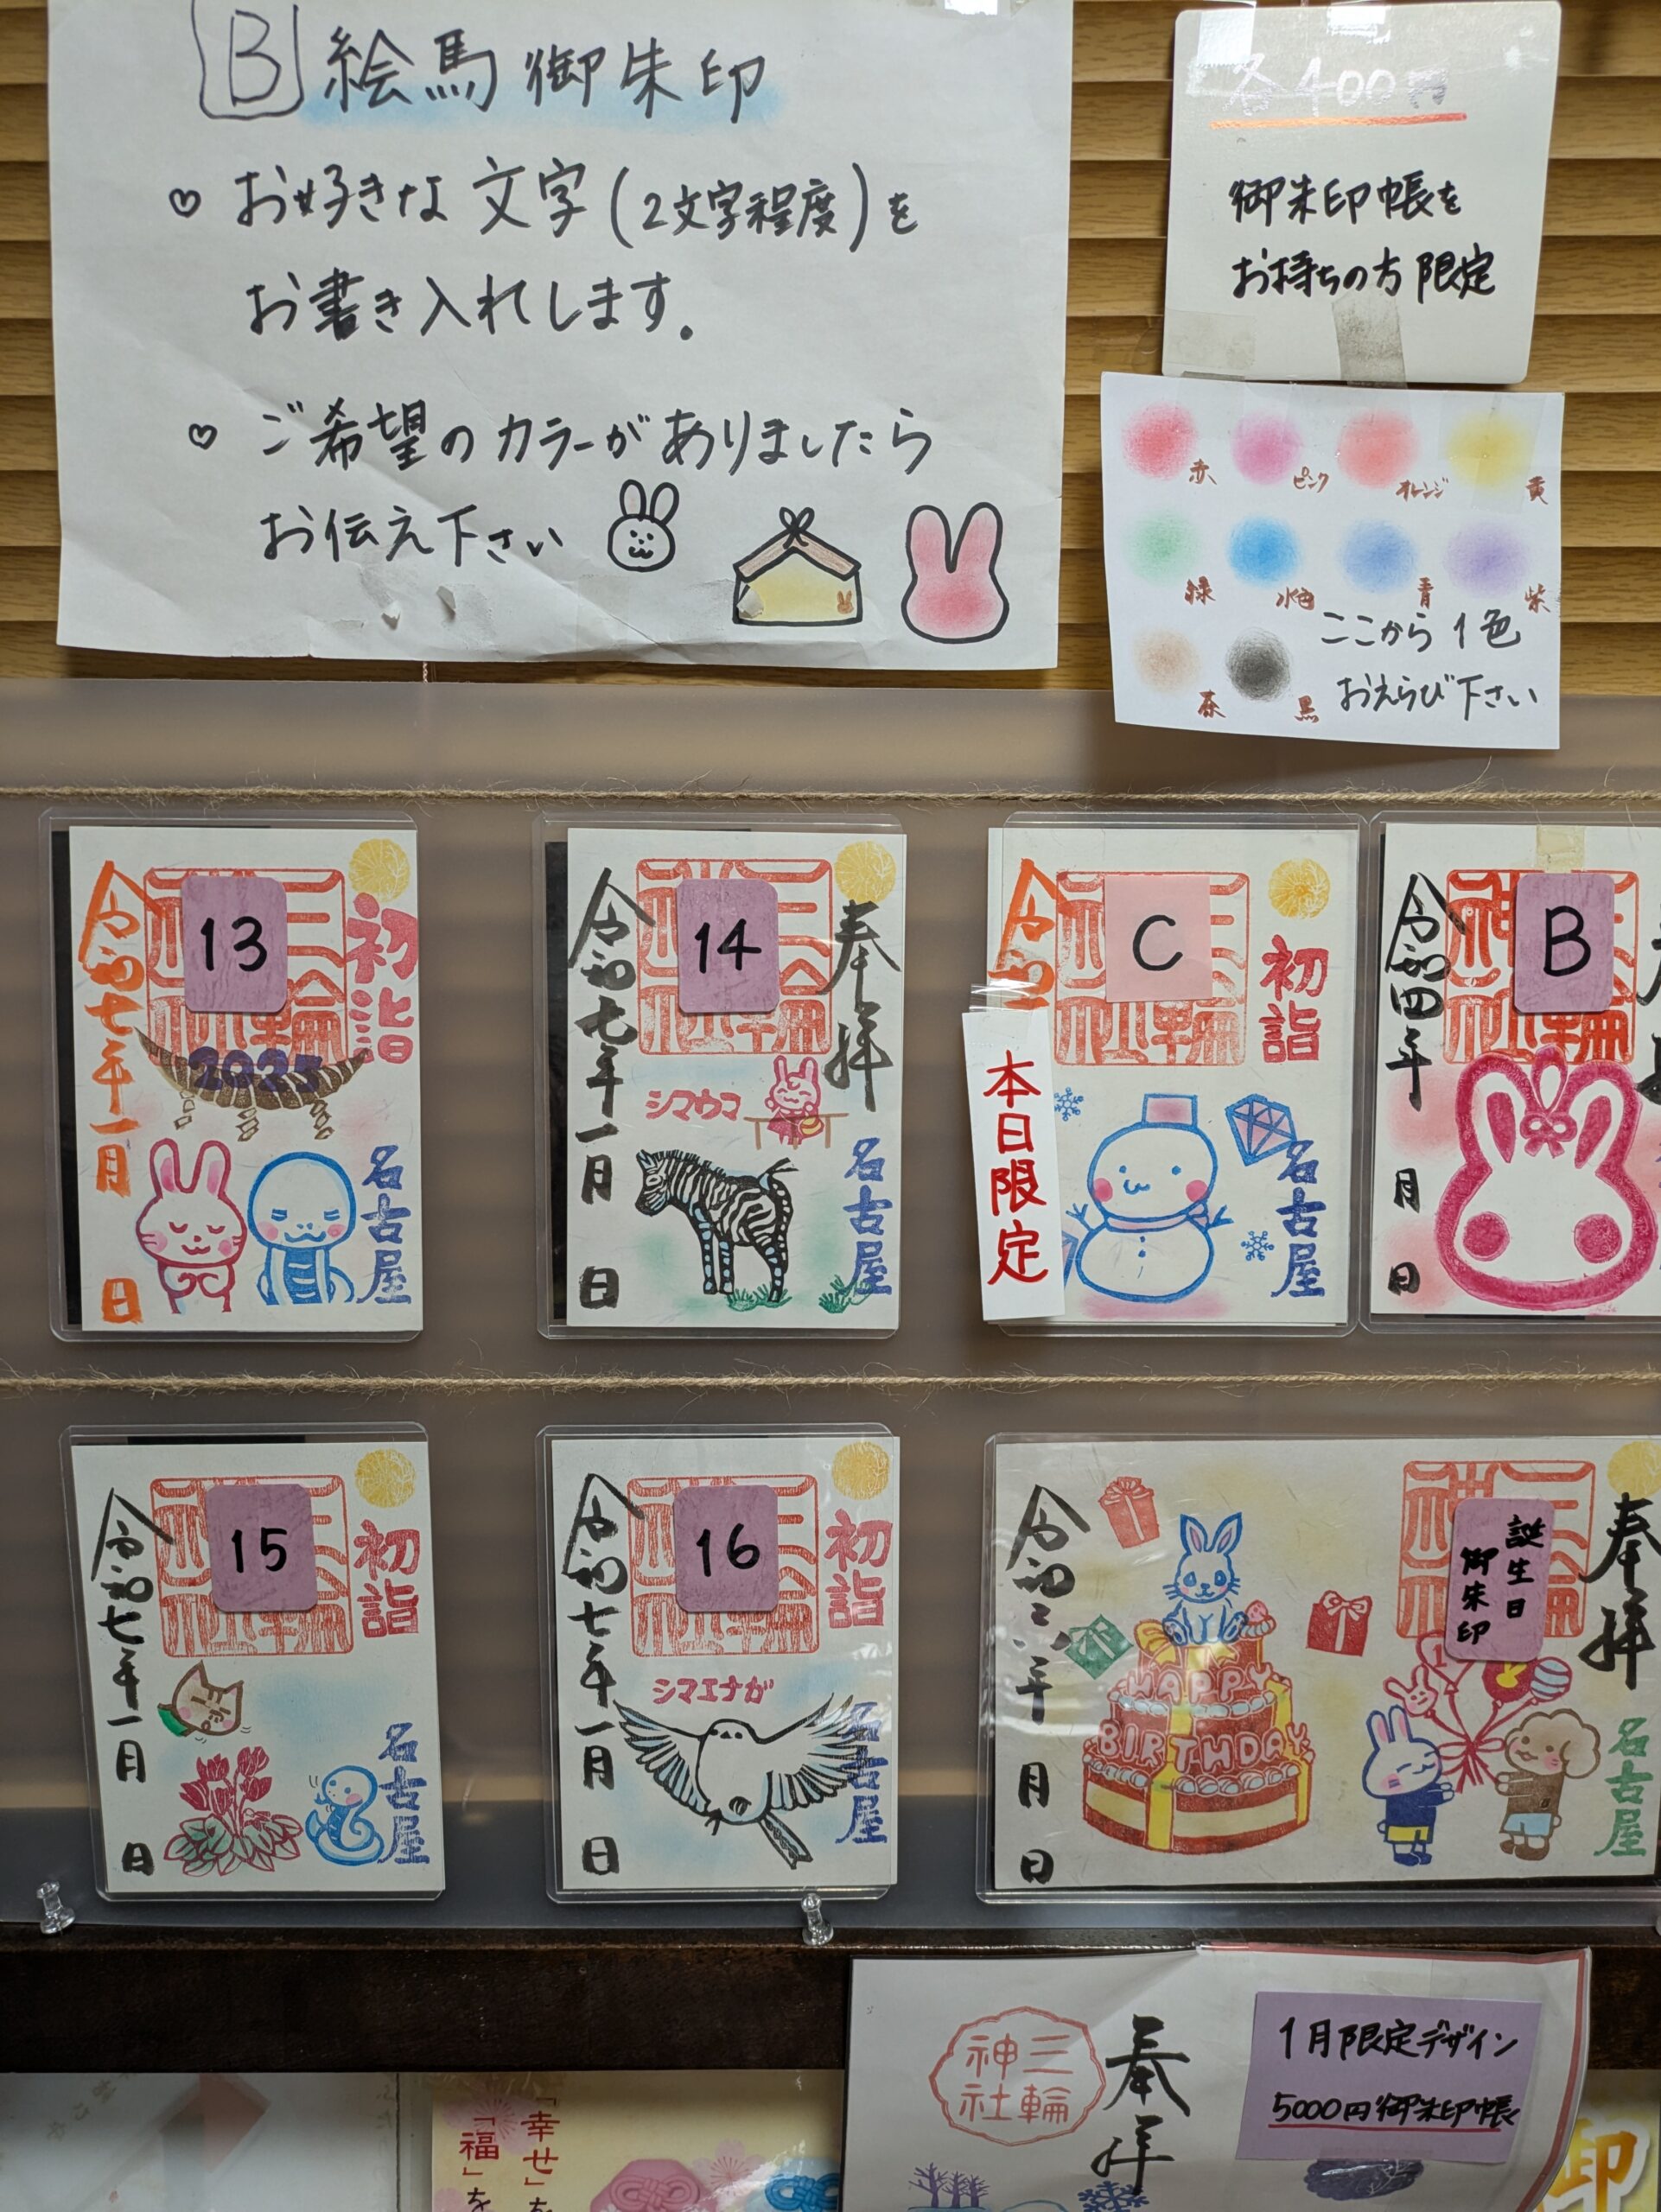 B 絵馬御朱印
♡ お好きな文字(2文字程度)を
お書き入れします。
♡ ご希望のカラーがありましたら
お伝え下さい
各400円
御朱印帳を
お持ちの方限定
赤 ピンク オレンジ 黄
緑 水色 青 紫
茶 黒
ここから1色
おえらび下さい
13
初詣
2025
令和七年一月 日
名古屋
14
奉拝
シマウマ
令和七年一月 日
名古屋
C
初詣
令和
本日限定
名古屋
B
令和四年 月 日
15
初詣
令和七年一月 日
名古屋
16
初詣
シマエナガ
令和七年一月 日
名古屋
誕生日
御朱印
奉拝
HAPPY
BIRTHDAY
令和 年 月 日
名古屋
三輪
神社
奉拝
1月限定デザイン
5000円御朱印帳
「幸せ」を
「福」を
御